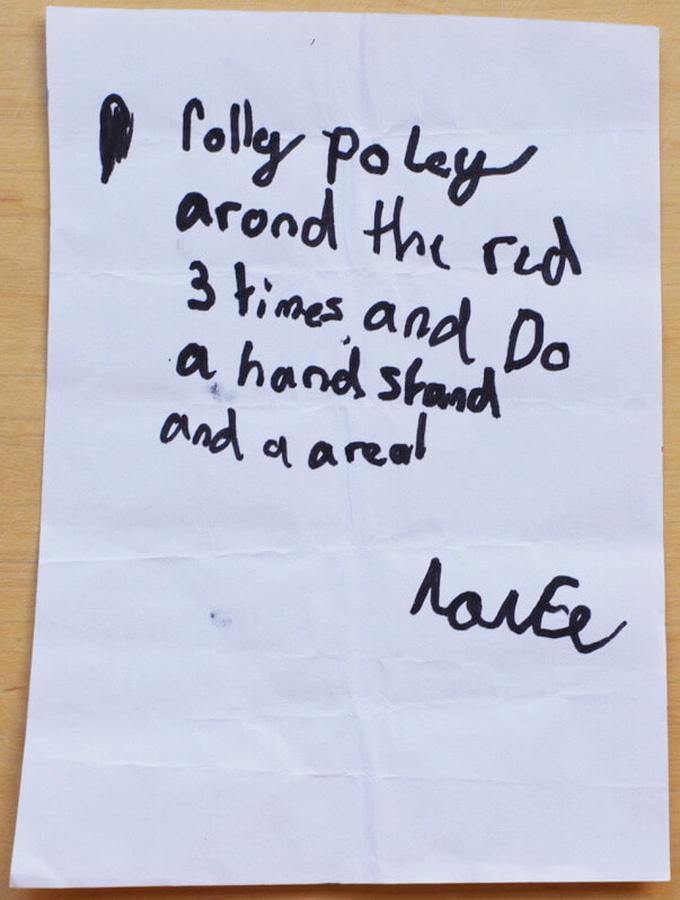 rolly poley
arond the red
3 times and Do
a hand stand
and a areal